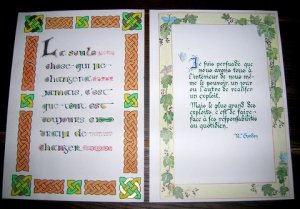 La seule
chose qui ne
changera
jamais, c'est
que tout est
toujours en
train de
changer
Je suis persuadé que
nous avons tous à
l'intérieur de nous mê-
me le pouvoir, un jour
ou l'autre de réaliser
un exploit.
Mais le plus grand des
exploits, c'est de faire
face à ses responsabilités
au quotidien.